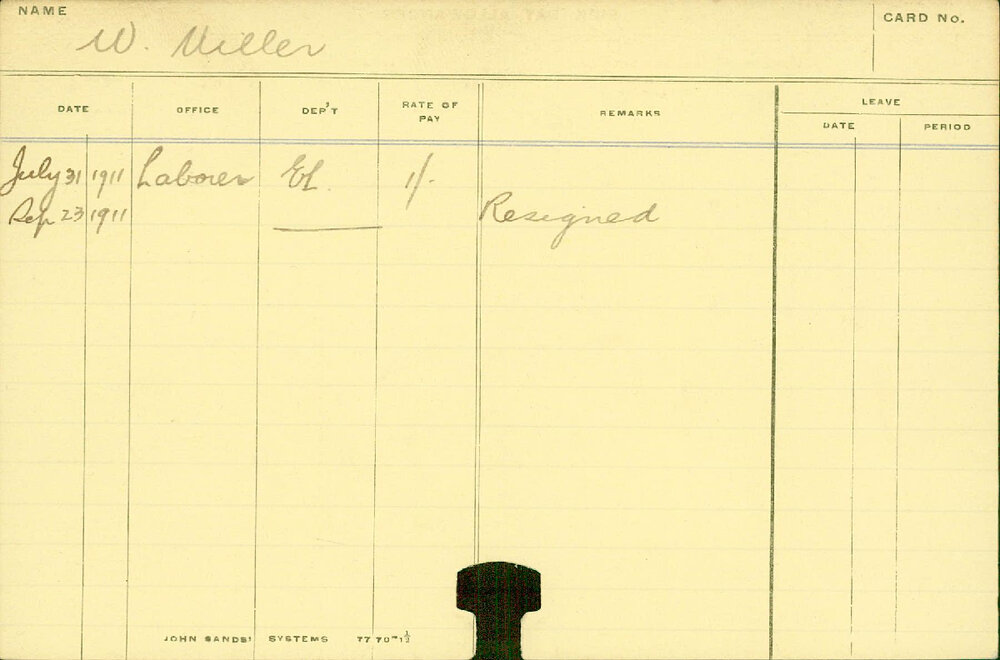 NAME W. Miller CARD No.
DATE OFFICE DEP'T RATE OF PAY REMARKS LEAVE
DATE PERIOD
July 31 1911 Laborer EL 1/-
Sep 23 1911 Resigned
JOHN SANDS' SYSTEMS 77 70